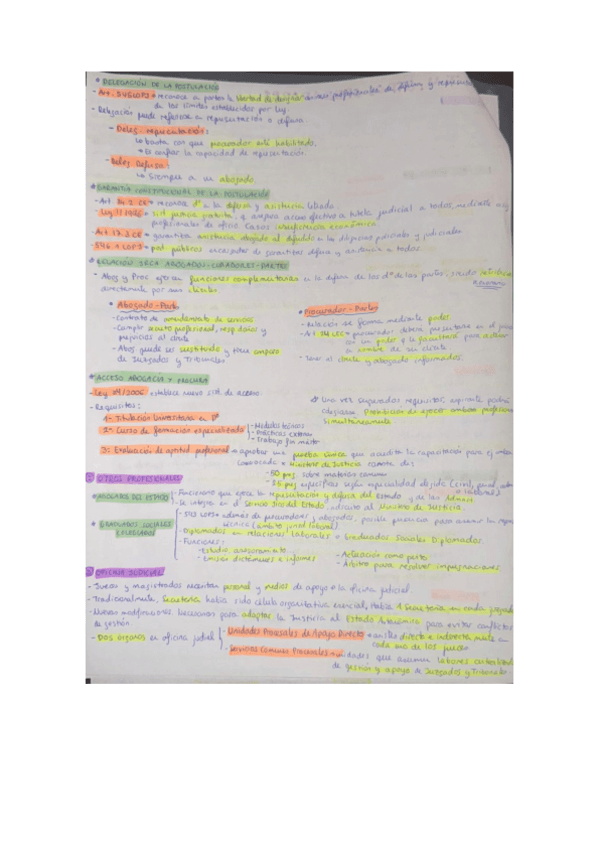 * DELEGACIÓN DE LA POSTULACIÓN
- Art. 545 LOPJ → reconoce a partes la libertad de designar
de los límites establecidos por ley.
- Relajación puede referirse a representación o defensa.
- Deleg. representación:
↳ basta con que procurador esté habilitado.
↳ la capacidad de representación.
- Deleg. Defensa:
↳ Siempre a un abogado.
* GARANTÍA CONSTITUCIONAL DE LA POSTULACIÓN
- Art. 24.2 CE → reconoce dº a la defensa y asistencia letrada.
- Ley 1/1996 → justicia gratuita, y asegura acceso efectivo a tutela judicial a todos, mediante
profesionales de oficio. Casos insuficiencia económica.
- Art. 17.3 CE → garantiza asistencia abogado al detenido en las diligencias policiales y judiciales.
- 546.1 LOPJ → pod. públicos encargados de garantizar defensa y asistencia a todos.
* RELACIÓN ABOGADOS-CURADORES-PARTES
- Abog y Proc ejercen funciones complementarias en la defensa de los dº de las partes, siendo
directamente por sus clientes
• Abogado - Parte
- Contrato de arrendamiento de servicios
- Cumplir secreto profesional, resp. daños y
perjuicios al cliente
- Abog puede ser sustituido y tiene amparo
de Juzgados y Tribunales
• Procurador - Partes
- Relación se forma mediante poder.
- Art. LEC → procurador deberá presentarse en el
con un poder q le faculte para actuar
a nombre de su cliente
- Tener al cliente y abogado informados.
* ACCESO ABOGACÍA Y PROCURA
- Ley 34/2006 establece nuevo sist. de acceso.
- Requisitos:
1- Titulación Universitaria en Dº
2- Curso de formación especializado
- Módulos teóricos
- Prácticas externas
- Trabajo fin máster
3- Evaluación de aptitud profesional → aprobar una prueba única que acredita la capacitación para ej.
Convocada → Ministerio de Justicia consta de:
- 50 preg. sobre materias comunes
- 25 preg específicas según especialidad elegida (civil, penal,
o laboral)
Una vez superados requisitos, aspirante podrá
colegiarse. Prohibición de ejercer ambas profesiones
simultáneamente.
OTROS PROFESIONALES
* ABOGADOS DEL ESTADO
- Funcionarios que ejerce la representación y defensa del Estado y de las Admins
- Se integra en el Servicio Jcos del Estado, adscrito al Ministerio de Justicia.
* GRADUADOS SOCIALES COLEGIADOS
- LOPJ → además de procuradores y abogados, posible graduados para asumir la
técnica (ámbito jurisd. laboral)
- Diplomados en relaciones laborales o Graduados Sociales Diplomados.
- FUNCIONES:
- Estudio, asesoramiento
- Emisión dictámenes e informes
- Actuación como perito
- Árbitro para resolver impugnaciones
OFICINA JUDICIAL
- Jueces y magistrados necesitan personal y medios de apoyo → la oficina judicial.
- Tradicionalmente, Secretaría había sido célula organizativa esencial. Había 1 secretaría en cada juzgado
- Nuevas modificaciones necesarias para adaptar la Justicia al Estado Autonómico para evitar conflictos
de gestión
- Dos órganos en oficina judicial
- Unidades Procesales de Apoyo Directo → asiste directa e indirecta mente a
cada uno de los jueces
- Servicios Comunes Procesales → unidades que asumen labores centralizadas
de gestión y apoyo de Juzgados y Tribunales